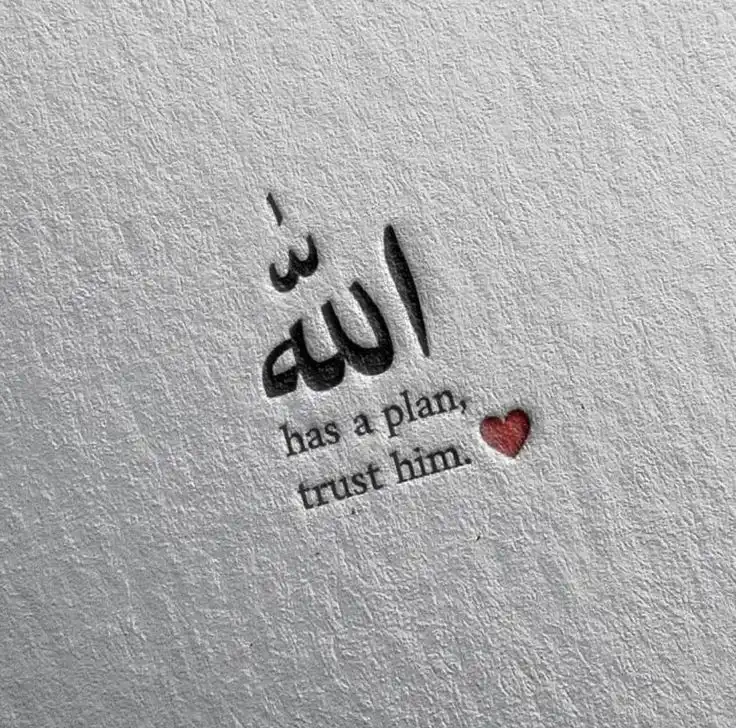 الله
has a plan,
trust him.